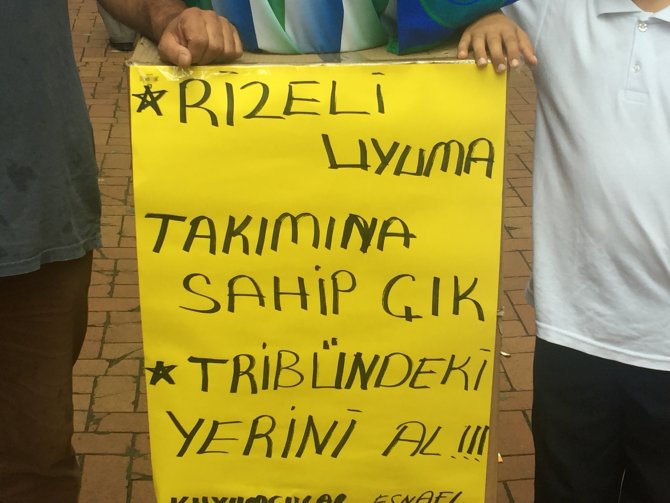 ★RİZELİ
UYUMA
TAKIMINA
SAHİP ÇIK
★TRİBÜNDEKİ
YERİNİ AL!!!
KUYUMCULAR ESNAFI